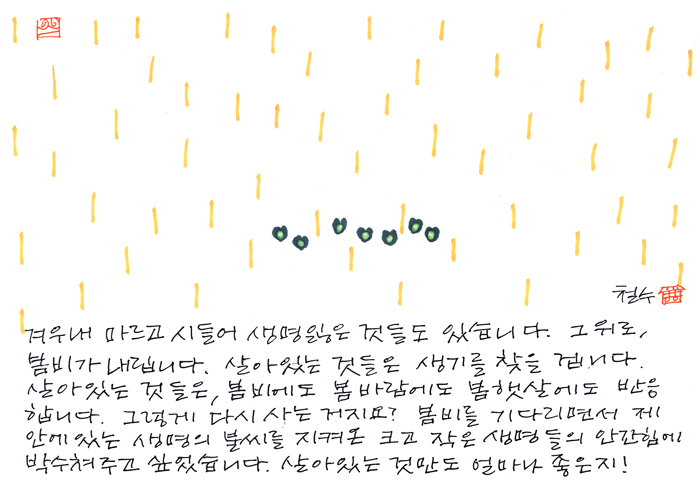 철수
겨우내 마르고 시들어 생명잃은 것들도 있습니다. 그 위로,
봄비가 내립니다. 살아있는 것들은 생기를 찾을 겁니다.
살아있는 것들은, 봄비에도 봄바람에도 봄햇살에도 반응
합니다. 그렇게 다시 사는 거지요? 봄비를 기다리면서 제
안에 있는 생명의 불씨를 지켜온 크고 작은 생명들의 안간힘에
박수쳐주고 싶었습니다. 살아있는 것만도 얼마나 좋은지!